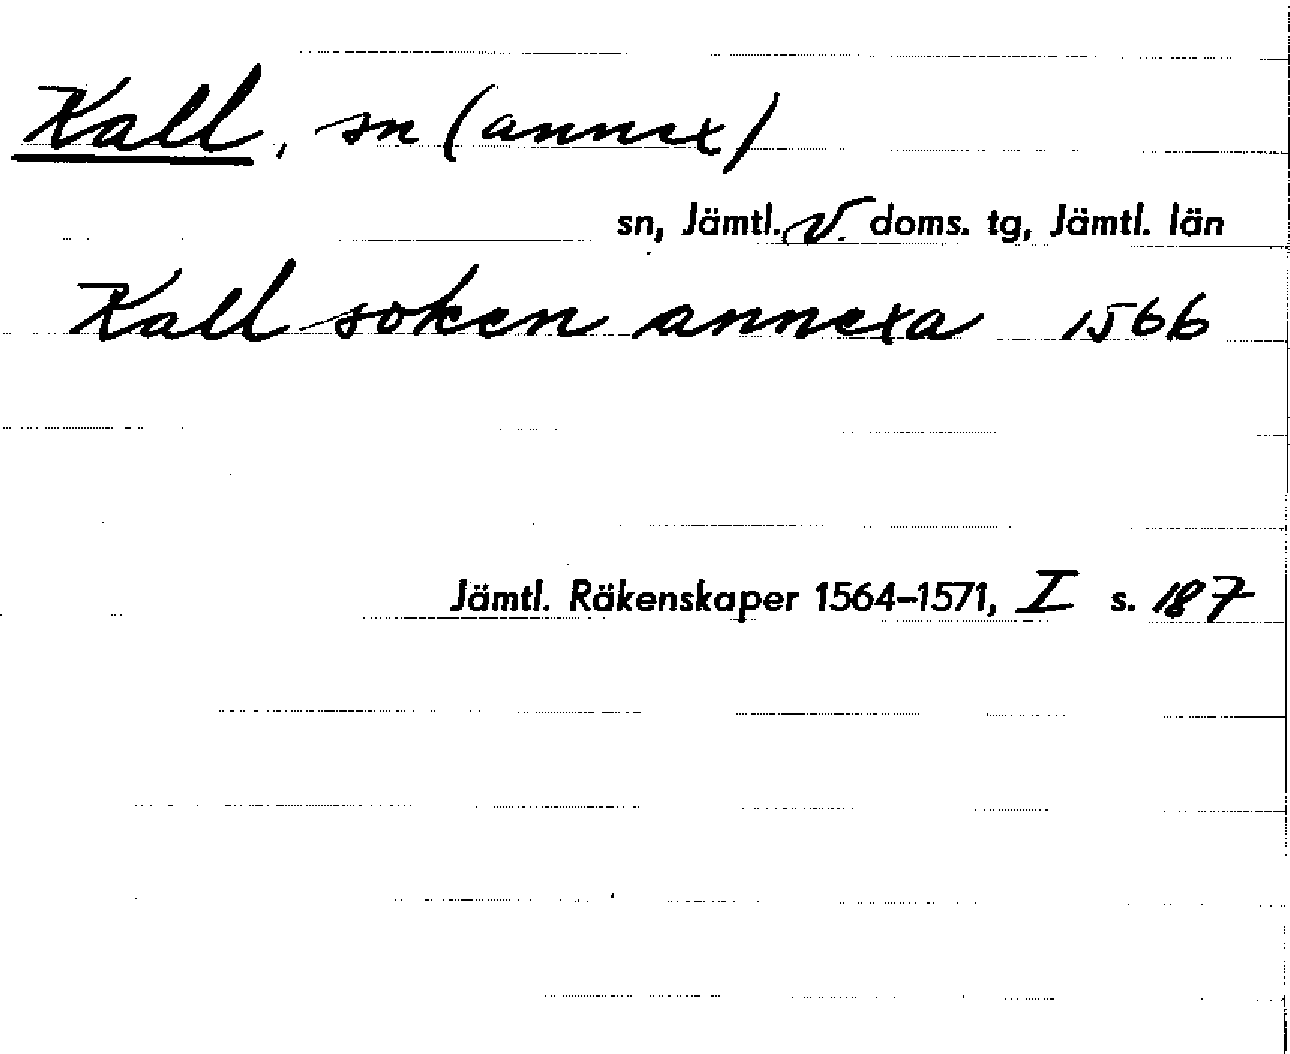 Kall, sn (annex)
sn, Jämtl. v. doms. tg, Jämtl. län
Kall soken annexa 1566
Jämtl. Räkenskaper 1564–1571, I s. 187